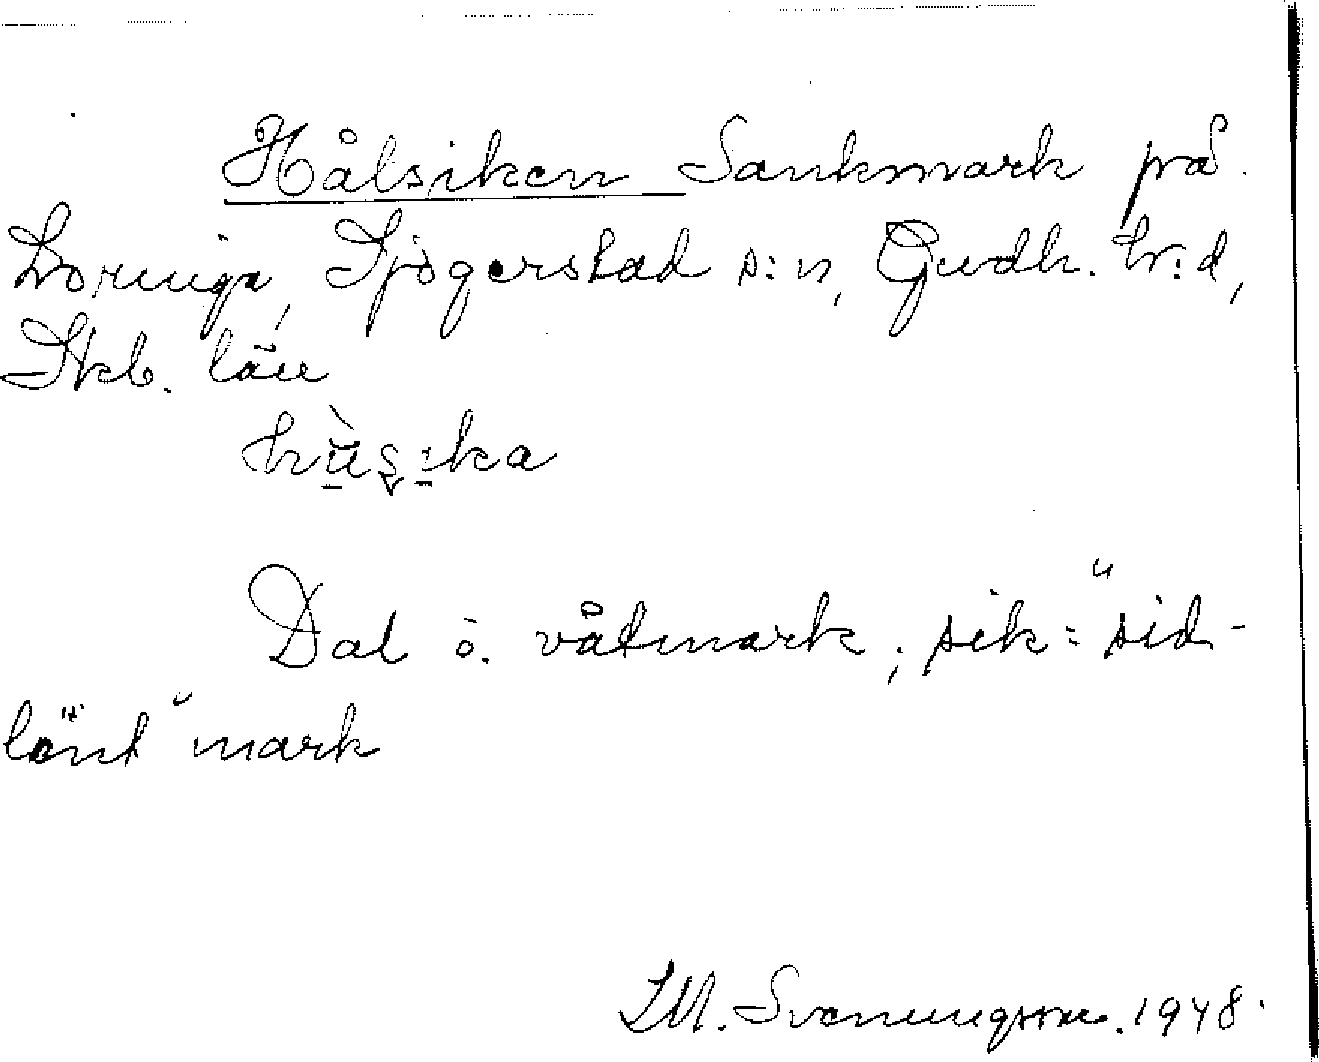 Hålsiken Sankmark på
Loringa, Sjögerstad s:n, Gudh. hr:d,
Skb. län
Dal o. våtmark, sik = "sid-
länt" mark
Svenungsson. 1948.